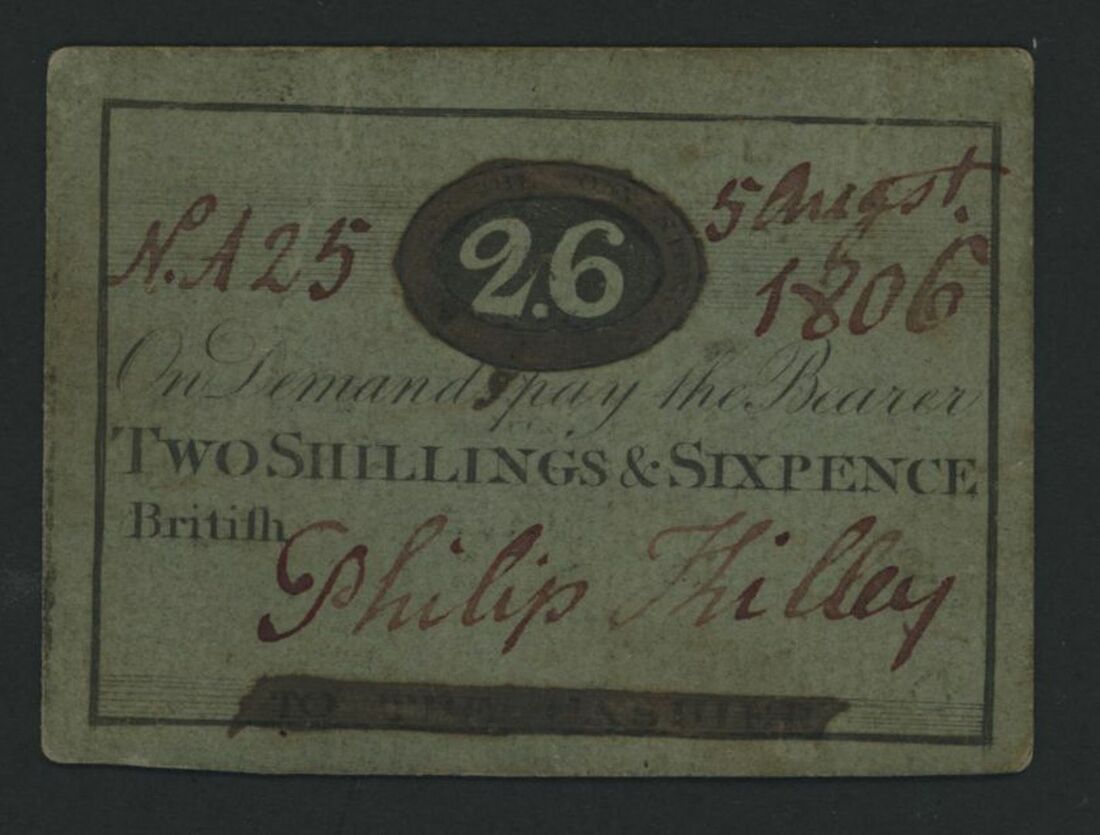 N. A 25
2.6
5 Augst.
1806
On Demand I pay the Bearer
TWO SHILLINGS & SIXPENCE
Britiſh
Philip Hilley
TO THE CASHIER